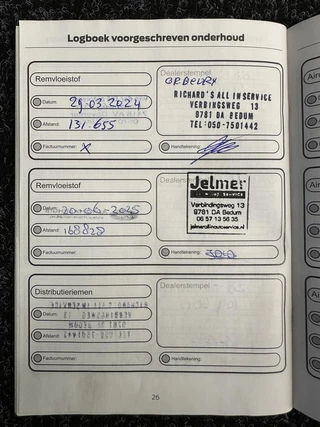 Logboek voorgeschreven onderhoud
Remvloeistof
Datum: 29-03-2024
Afstand: 131.655
Factuurnummer: X
Dealerstempel
RICHARD'S ALL INSERVICE
VERBINGSWEG 13
9781 DA BEDUM
TEL:050-7501442
Handtekening:
Remvloeistof
Datum: 20-06-2025
Afstand: 168828
Factuurnummer:
Jelmer
Verbindingsweg 13
9781 DA Bedum
06 57 13 56 35
Handtekening:
Distributieriemen
Datum:
Afstand:
Factuurnummer:
Dealerstempel
Handtekening:
26